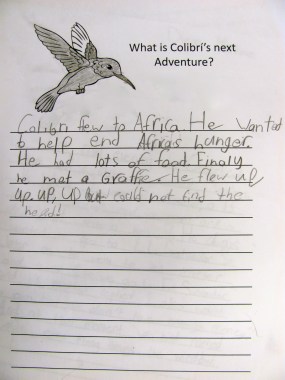 What is Colibrí's next
Adventure?
Colibri flew to Africa He wanted
to help end Africas hunger.
He had lots of food. Finaly
he mat a Graffe. He flew up
up, up, up but could not find the
head!